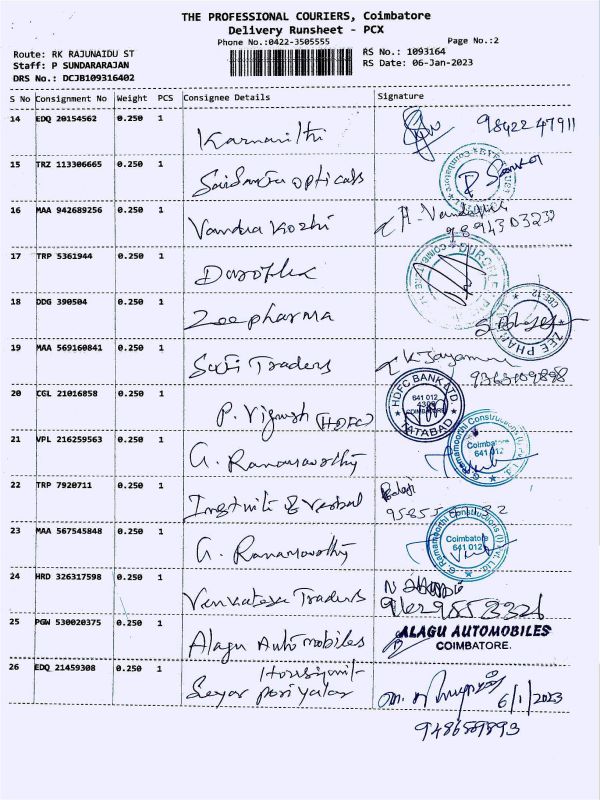 THE PROFESSIONAL COURIERS, Coimbatore
Delivery Runsheet - PCX
Phone No.:0422-3505555 Page No.:2
Route: RK RAJUNAIDU ST RS No.: 1093164
Staff: P SUNDARARAJAN RS Date: 06-Jan-2023
DRS No.: DCJB109316402
S No Consignment No Weight PCS Consignee Details Signature
14 EDQ 20154562 0.250 1 98422 47911
15 TRZ 113306665 0.250 1 opticals
16 MAA 942689256 0.250 1 Vandua Kozhi
9894303232
17 TRP 5361944 0.250 1 Duroflex
18 DDG 390504 0.250 1 Zee pharma
CBE-12
ZEE PHAR
19 MAA 569160841 0.250 1 Traders K Jayam
20 CGL 21016858 0.250 1 P. Vignesh (HDFC)
HDFC BANK LTD.
641 012
COIMBATORE
TATABAD
21 VPL 216259563 0.250 1 G. Ramamoorthy
G Ramamoorthi Constructions (I) Pvt. Ltd.
Coimbatore
641 012
22 TRP 7920711 0.250 1 Balaji
23 MAA 567545848 0.250 1 G. Ramamoorthy
G Ramamoorthi Constructions (I) Pvt. Ltd.
Coimbatore
641 012
24 HRD 326317598 0.250 1 Venkatesa Traders
25 PGW 530020375 0.250 1 Alagu Automobiles
ALAGU AUTOMOBILES
COIMBATORE.
26 EDQ 21459308 0.250 1 6/1/2023